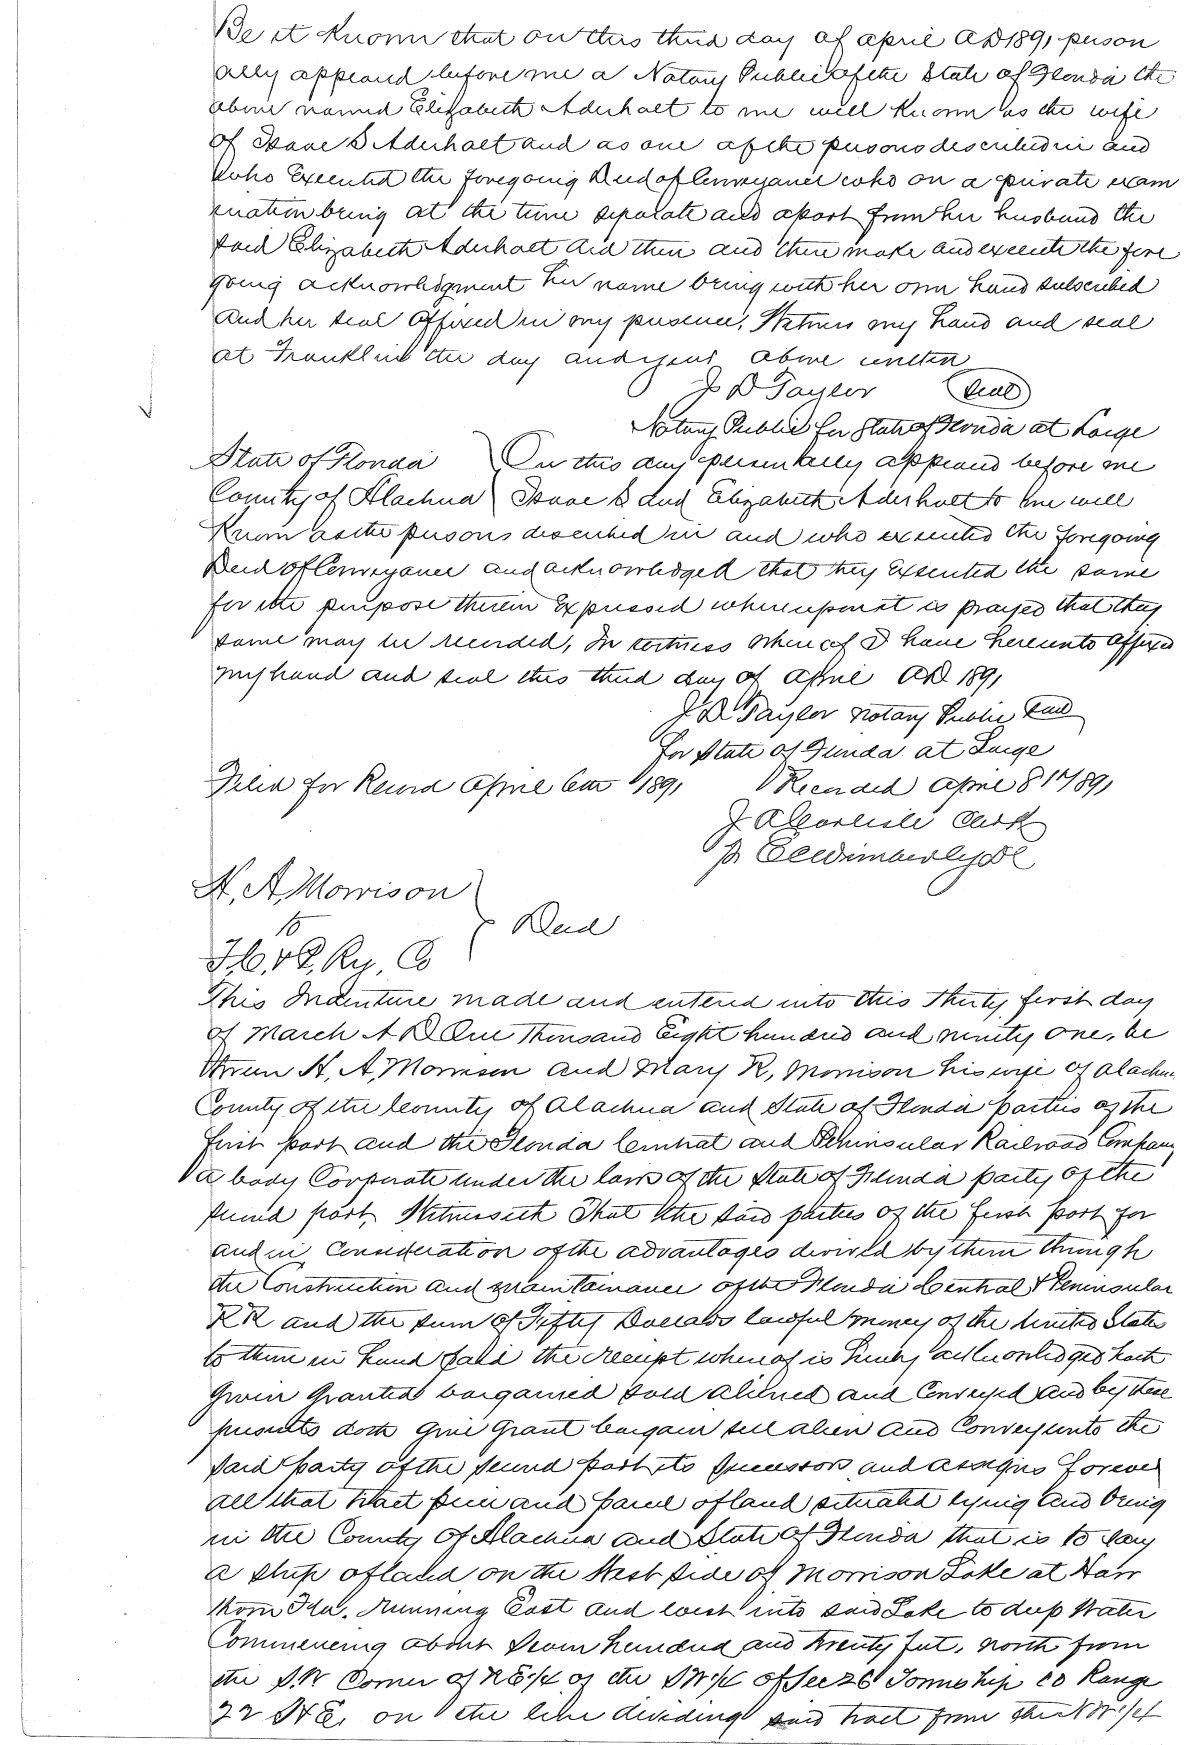 Be it Known that on this third day of april AD 1891 person
ally appeard before me a Notary Public of the State of Florida the
above named Elizabeth Aderholt to me well Known as the wife
of Isaac S Aderholt and as one of the persons described in and
who Executed the foregoing Deed of Conveyance who on a private exam
ination being at the time separate and apart from her husband the
said Elizabeth Aderholt did then and there make and execute the fore
going acknowledgment her name being with her own hand subscribed
and her seal affixed in my presence. Witness my hand and seal
at Franklin the day and year above written
J D Taylor Seal
Notary Public for State of Florida at Large
State of Florida } On this day personally appeard before me
County of Alachua } Isaac S and Elizabeth Aderholt to me well
Known as the persons described in and who executed the foregoing
Deed of Conveyance and acknowledged that they Executed the same
for the purpose therein Expressed whereupon it is prayed that they
same may be recorded, In witness whereof I have hereunto affixed
my hand and seal this third day of april AD 1891
J D Taylor Notary Public Seal
for State of Florida at Large
Filed for Record april 6th 1891 Recorded april 8th 1891
J A Carlisle Clerk
pr E C Wimberly DC
N. A. Morrison
to } Deed
F. C. & P. Ry. Co
This Indenture made and entered into this thirty first day
of March A D One thousand Eight hundred and ninety one, be
tween N. A. Morrison and Mary R. Morrison his wife of Alachua
County of the County of Alachua and State of Florida parties of the
first part and the Florida Central and Peninsular Railroad Company
a body Corporate under the laws of the State of Florida party of the
second part, Witnesseth That the said parties of the first part for
and in Consideration of the advantages derived by them through
the Construction and maintainance of the Florida Central & Peninsular
RR and the sum of Fifty Dollars lawful money of the United States
to them in hand paid the receipt whereof is hereby acknowledged hath
given granted bargained sold aliened and Conveyed and by these
presents doth give grant bargain sell alien and Convey unto the
said party of the second part its successors and assigns forever
all that tract piece and parcel of land situated lying and being
in the County of Alachua and State of Florida that is to say
a strip of land on the West side of Morrison Lake at Haw
thorn Fla. running East and west into said Lake to deep Water
Commencing about seven hundred and twenty feet, north from
the S.W Corner of NE 1/4 of the SW 1/4 of Sec 26 Township 10 Range
22 S & E, on the line dividing said tract from the NW 1/4